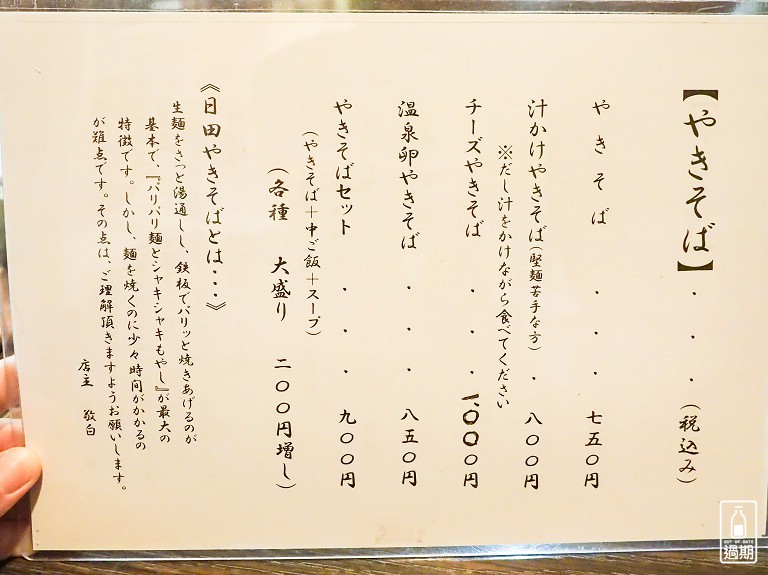 【やきそば】・・・(税込み)
やきそば・・・七五〇円
汁かけやきそば(堅麺苦手な方)・八〇〇円
※だし汁をかけながら食べてください
チーズやきそば・・・一、〇〇〇円
温泉卵やきそば・・・八五〇円
やきそばセット・・・九〇〇円
(やきそば+中ご飯+スープ)
(各種 大盛り 二〇〇円増し)
《日田やきそばとは・・・》
生麺をさっと湯通しし、鉄板でパリッと焼きあげるのが
基本で、『パリパリ麺とシャキシャキもやし』が最大の
特徴です。しかし、麺を焼くのに少々時間がかかるの
が難点です。その点は、ご理解頂きますようお願いします。
店主 敬白
OUT OF DATE
過期